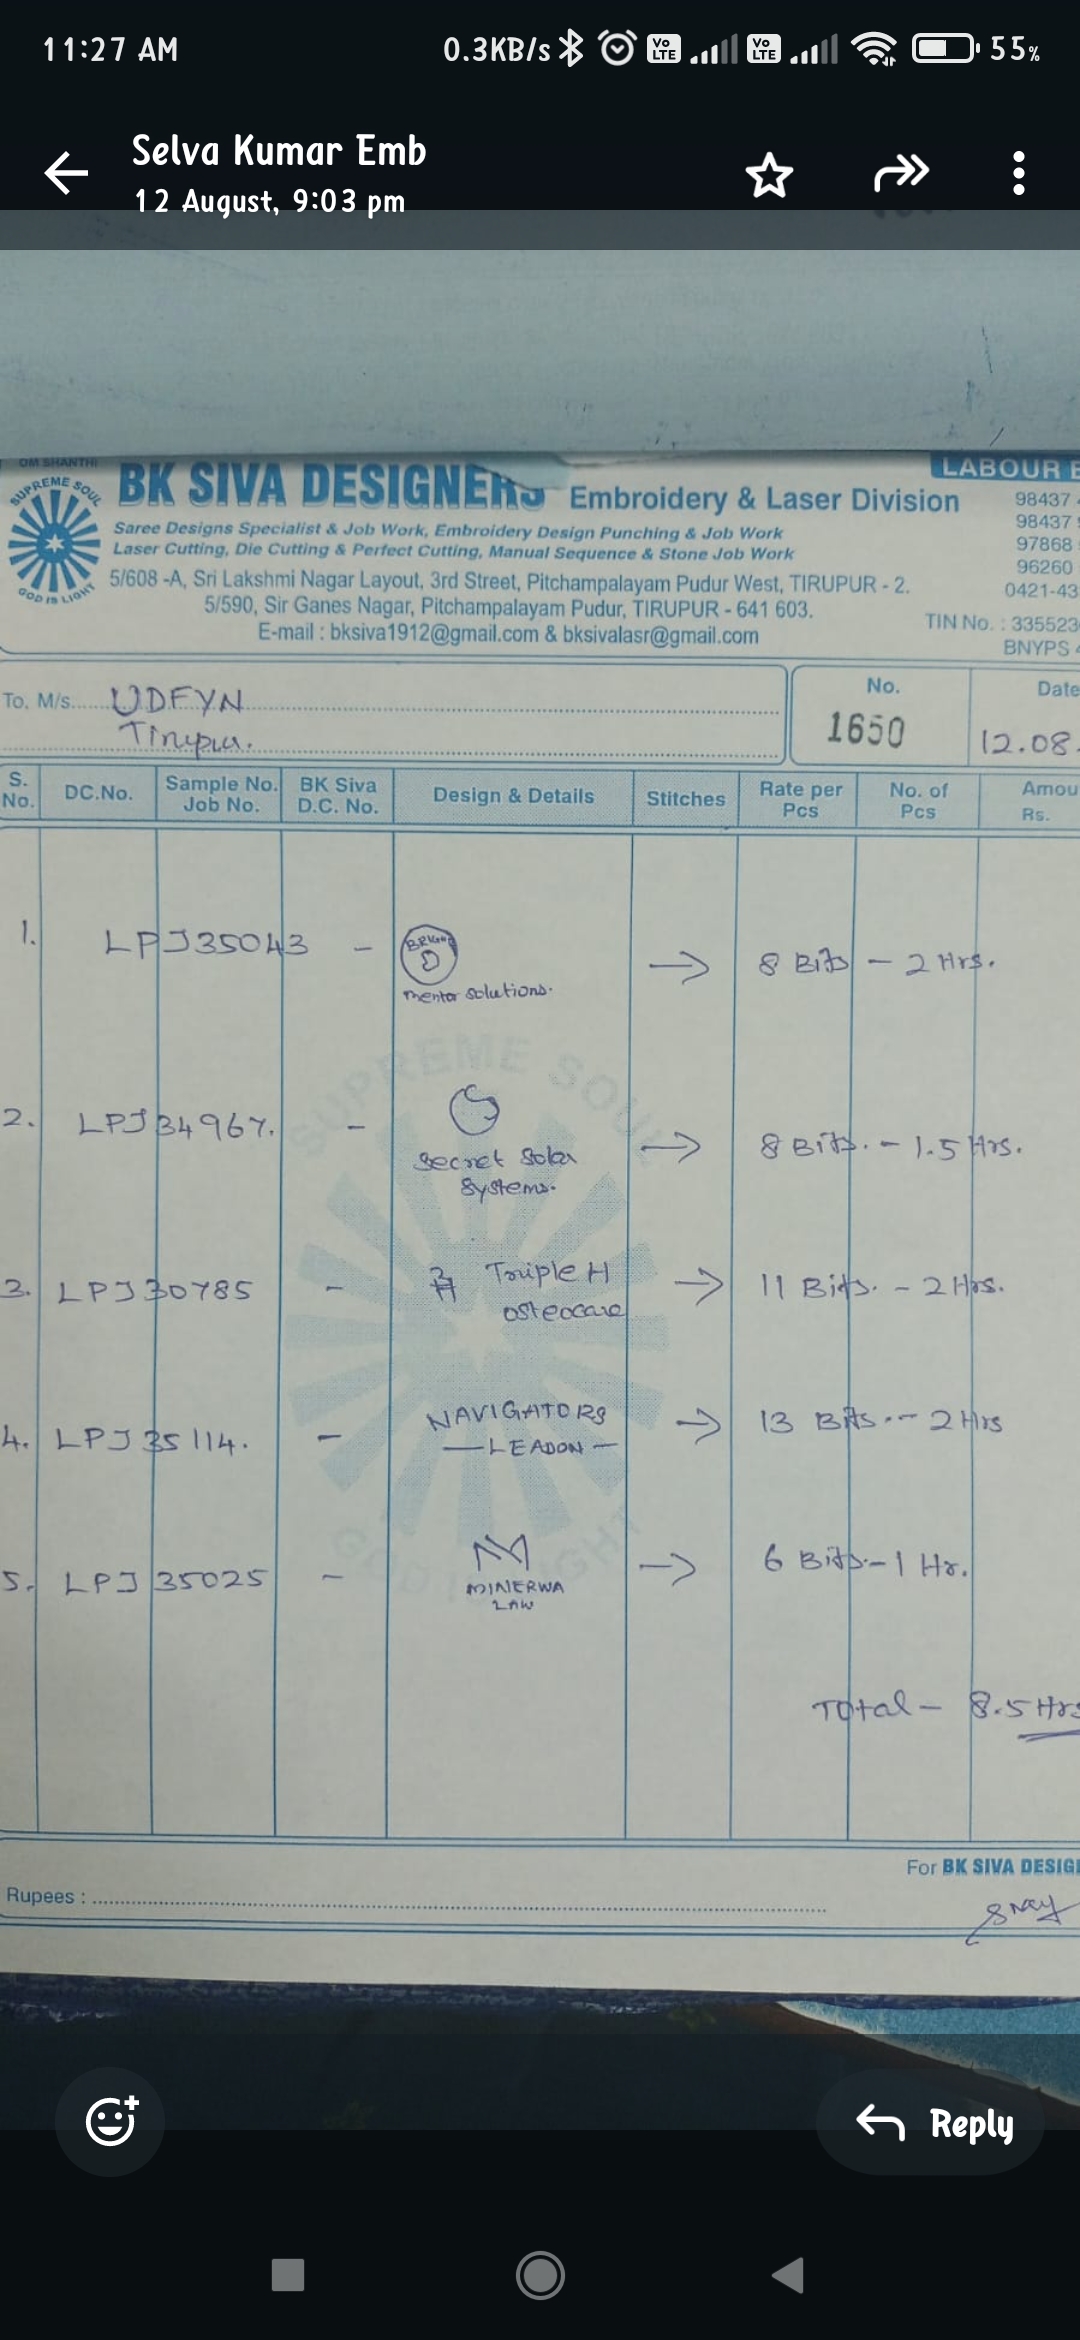 11:27 AM 0.3KB/s Vo LTE Vo LTE 55%
Selva Kumar Emb
12 August, 9:03 pm
OM SHANTHI
SUPREME SOUL
GOD IS LIGHT
LABOUR B
BK SIVA DESIGNERS Embroidery & Laser Division
Saree Designs Specialist & Job Work, Embroidery Design Punching & Job Work
Laser Cutting, Die Cutting & Perfect Cutting, Manual Sequence & Stone Job Work
5/608 -A, Sri Lakshmi Nagar Layout, 3rd Street, Pitchampalayam Pudur West, TIRUPUR - 2.
5/590, Sir Ganes Nagar, Pitchampalayam Pudur, TIRUPUR - 641 603.
E-mail : bksiva1912@gmail.com & bksivalasr@gmail.com
98437
98437
97868
96260
0421-43
TIN No. : 335523
BNYPS
To. M/s. UDFYN
Tirupur.
No.
1650
Date
12.08.
S. No. DC.No. Sample No. Job No. BK Siva D.C. No. Design & Details Stitches Rate per Pcs No. of Pcs Amou Rs.
1. LPJ35043 - BRIGHT
mentor solutions. → 8 Bits - 2 Hrs.
SUPREME SOUL
2. LPJ34967. - Secret Solar
Systems. → 8 Bits. - 1.5 Hrs.
3. LPJ30785 - Triple H
osteocare → 11 Bits. - 2 Hrs.
4. LPJ35114. - NAVIGATORS
— LEADON — → 13 Bits.- 2 Hrs
5. LPJ35025 - M
MINERWA
LAW → 6 Bits.- 1 Hr.
Total - 8.5 Hrs
For BK SIVA DESIG
Rupees :
Reply